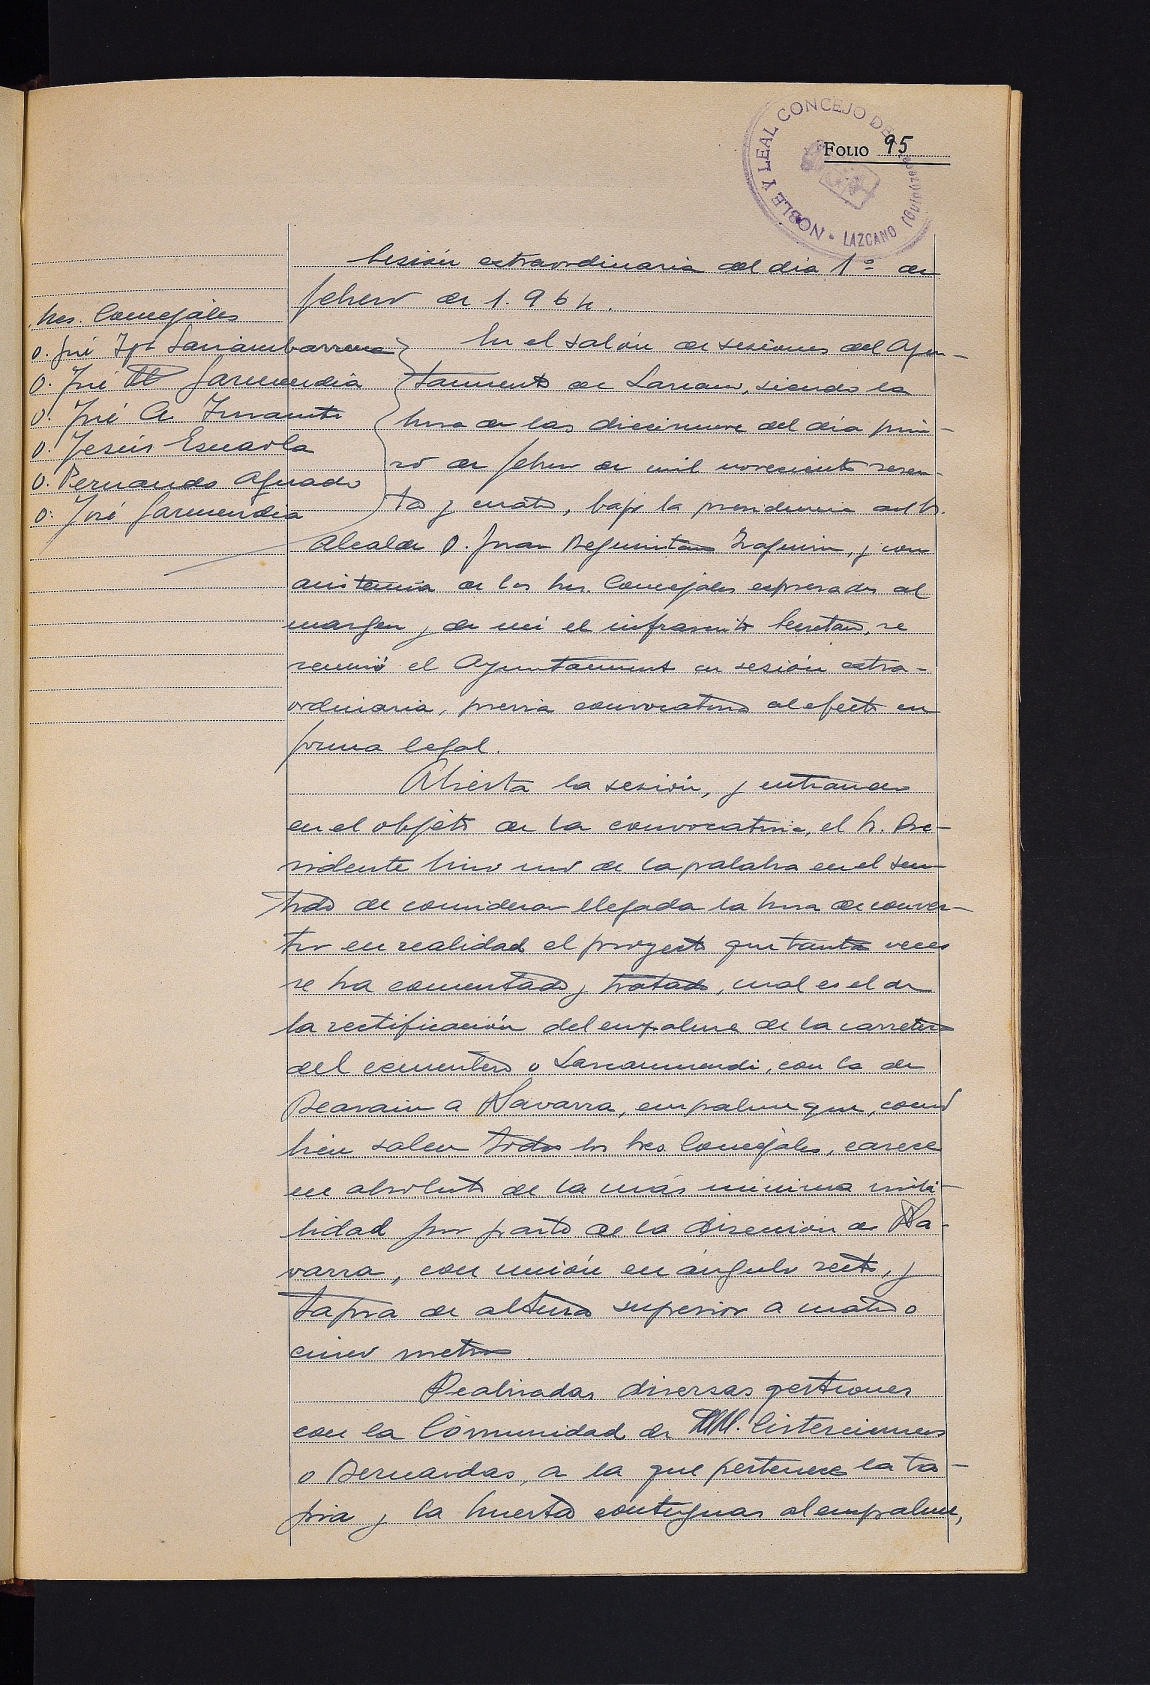 NOBLE Y LEAL CONCEJO DE LAZCANO (Guipúzcoa)
FOLIO 95
Sesión extraordinaria del día 1º de
febrero de 1.964.
Sres. Concejales
D. José Igº Lariambarrena
D. José Mª Garmendia
D. José A. Insausti
D. Jesús Esnaola
D. Bernardo Aguado
D. José Garmendia
En el salón de sesiones del Ayun-
tamiento de Lazcano, siendo la
hora de las diecinueve del día prime-
ro de febrero de mil novecientos sesen-
ta y cuatro, bajo la presidencia del Sr.
Alcalde D. Juan Beguiristain Iraguirre, y con
asistencia de los Sres. Concejales expresados al
margen y de mi el infrascrito Secretario, se
reunió el Ayuntamiento en sesión extra-
ordinaria, previa convocatoria al efecto en
forma legal.
Abierta la sesión, y entrando
en el objeto de la convocatoria, el Sr. Pre-
sidente hizo uso de la palabra en el sen-
tido de considerar llegada la hora de conver-
tir en realidad el proyecto que tantas veces
se ha comentado y tratado, cual es el de
la rectificación del empalme de la carretera
del cementerio o Lazcanomendi, con la de
Beasain a Navarra, empalme que, como
bien saben todos los Sres. Concejales, carece
en absoluto de la más mínima visibi-
lidad por parte de la dirección de Na-
varra, con unión en ángulo recto, y
tapia de altura superior a cuatro o
cinco metros.
Realizadas diversas gestiones
con la Comunidad de MM. Cistercienses
o Bernardas, a la que pertenece la ta-
pia y la huerta contiguas al empalme,